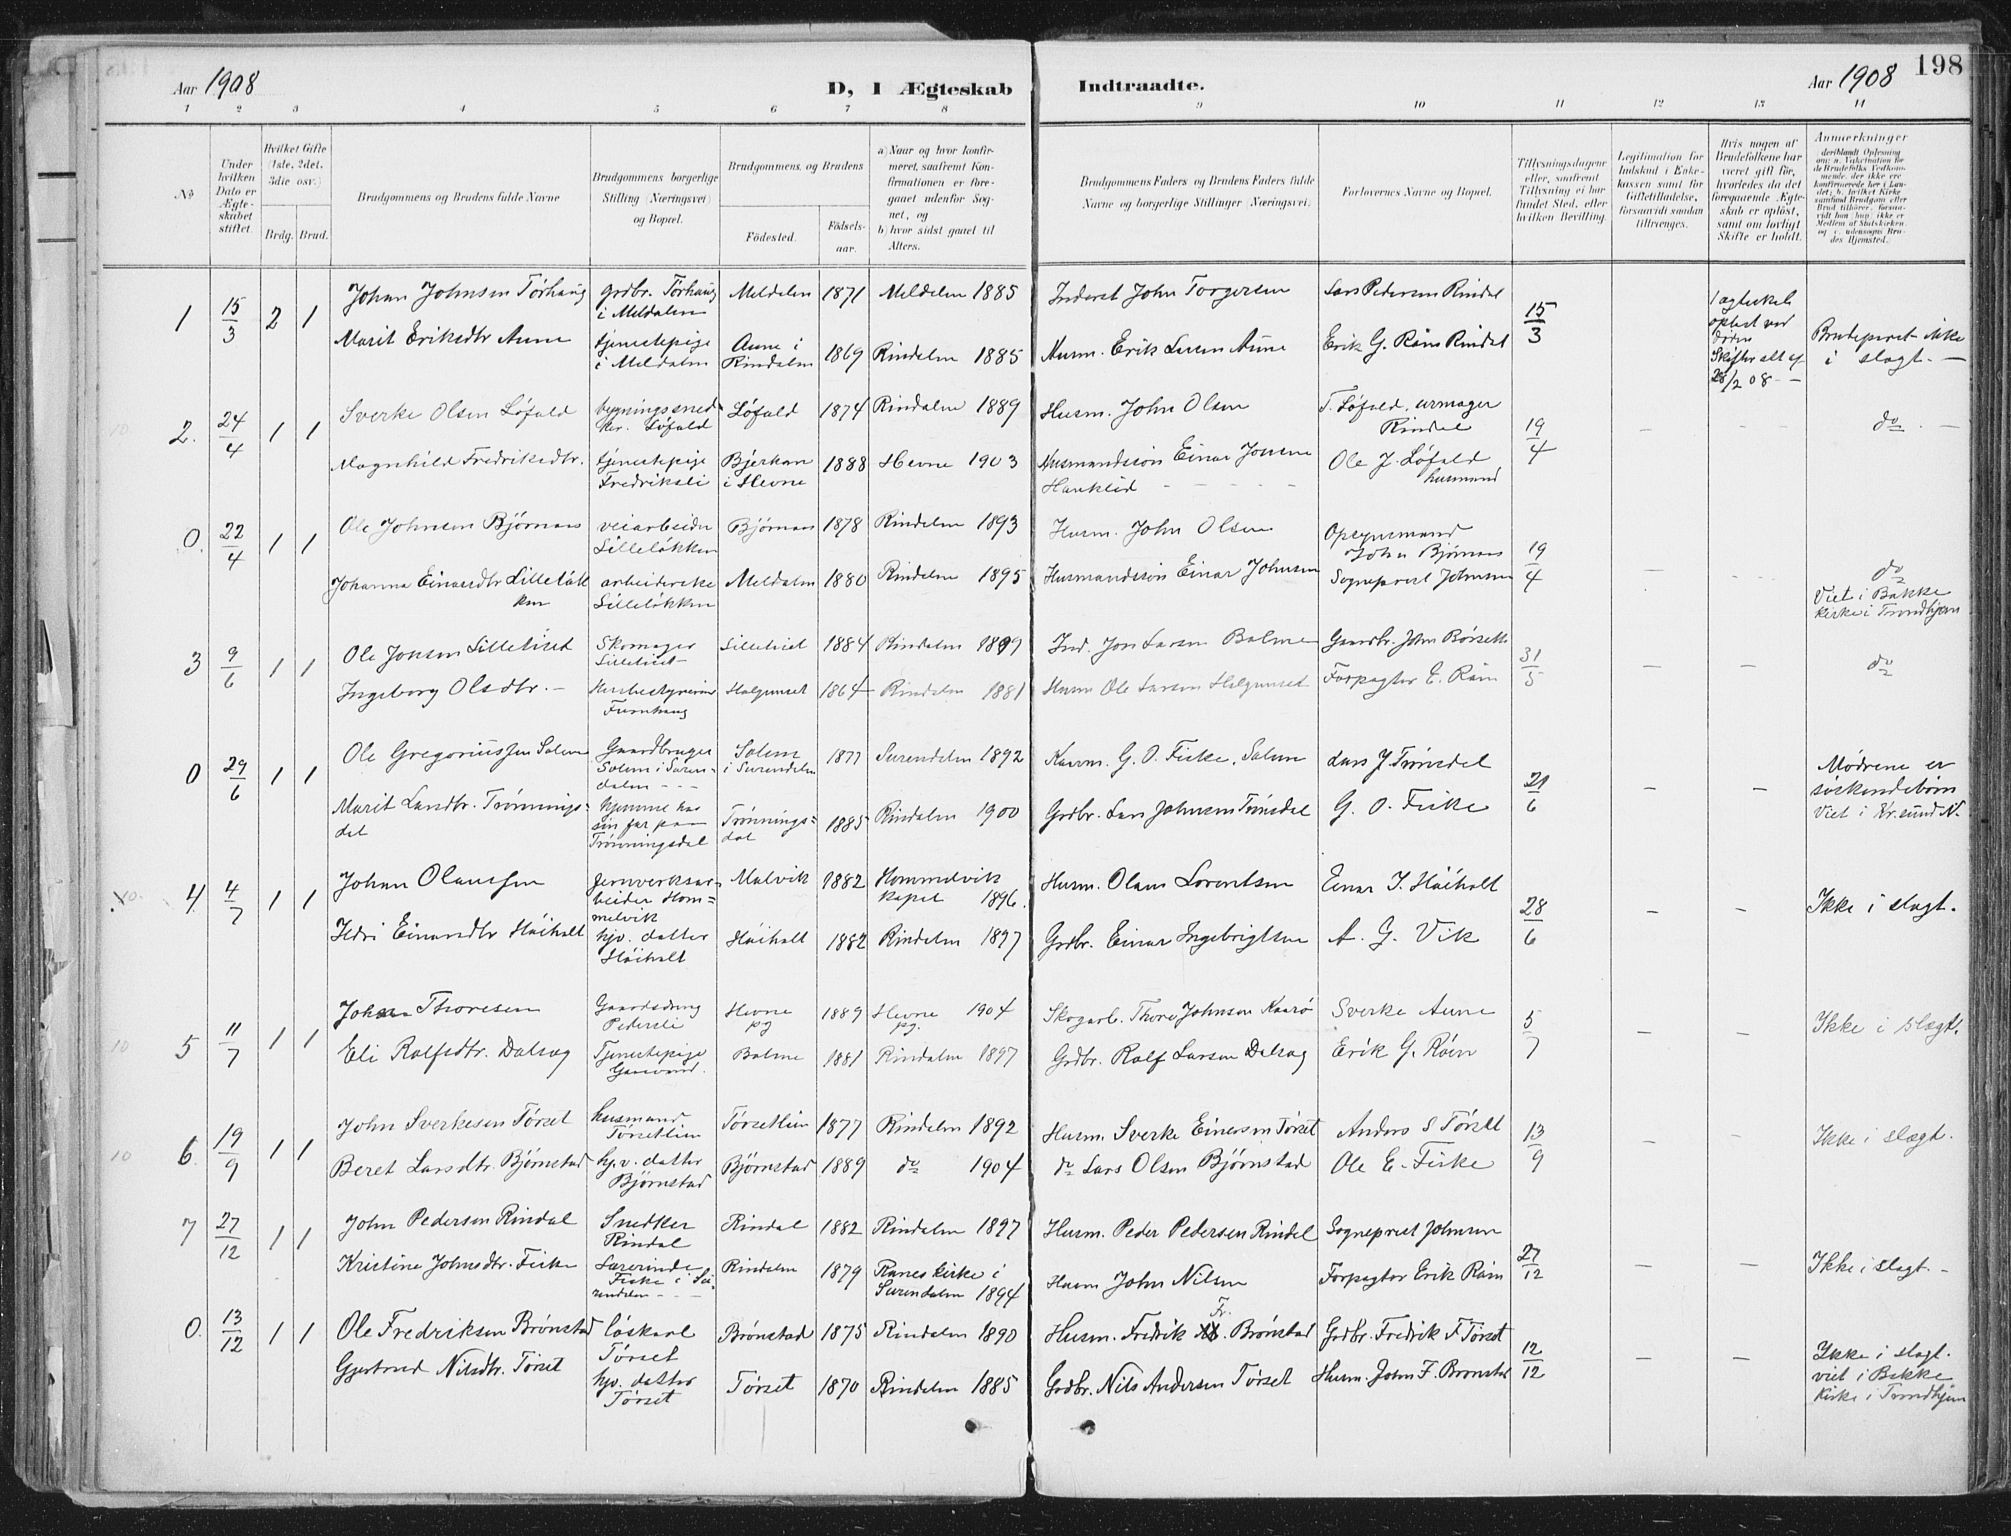 198
Aar 1908
D, 1 Ægteskab
Indtraadte.
Aar 1908
1 2 3 4 5 6 7 8 9 10 11 12 13 14
No
Under hvilken Dato er Ægteskabet stiftet.
Hvilket Gifte (1ste, 2det, 3die osv.)
Brdg. Brud.
Brudgommens og Brudens fulde Navne
Brudgommens borgerlige Stilling (Næringsvei) og Bopæl.
Brudgommens og Brudens
Fødested.
Fødsels-aar.
a) Naar og hvor konfirmeret, saafremt Konfirmationen er foregaaet udenfor Sognet, og
b) hvor sidst gaaet til Alters.
Brudgommens Faders og Brudens Faders fulde Navne og borgerlige Stillinger (Næringsvei).
Forlovernes Navne og Bopæl.
Tillysningsdagene eller, saafremt Tillysning ei har fundet Sted, efter hvilken Bevilling.
Legitimation for Indskud i Enkekassen samt for Giftetilladelse, forsaavidt saadan tiltrænges.
Hvis nogen af Brudefolkene har været gift før, hvorledes da det foregaaende Ægteskab er opløst, samt om lovligt Skifte er holdt.
Anmerkninger
1 15/3 2 1 Johan Johnsen Tørhaug grdbr. Tørhaug i Meldalen Meldalen 1871 Meldalen 1885 Inderst John Torgersen Lars Pedersen Rindal 15/3 1 ægteskab opløst ved døden Skifteratt af 28/2 08 - Brudeparet ikke i slægt. -
Marit Eriksdtr Aune tjenestepige i Meldalen Aune i Rindalen 1869 Rindalen 1885 Husm. Erik Larsen Aune Erik G. Røen Rindal
2. 24/4 1 1 Sverke Olsen Løfald bygningssnedker. Løfald Løfald 1874 Rindalen 1889 Husm. John Olsen T. Løfald, urmager Rindal 19/4 do
Magnhild Fredriksdtr. tjenestepige Fredriksli Bjerkan i Hevne 1888 Hevne 1903 Husmandssøn Einar Jonsen Hanklid Ole J. Løfald husmand
0. 22/4 1 1 Ole Johnsen Bjørnaas veiarbeider Lilleløkken Bjørnaas 1878 Rindalen 1893 Husm. John Olsen Opsynsmand John Bjørnaas 19/4 do
Johanna Einarsdtr Lilleløkken arbeiderske Lilleløkken Meldalen 1880 Rindalen 1895 Husmandssøn Einar Johnsen Sogneprest Johnsen Viet i Bakke Kirke i Trondhjem
3 9/6 1 1 Ole Jonsen Lilletiset Skomager Lilletiset 1884 Rindalen 1899 Ind. Jon Larsen Bolme Gaardbr. John Børseth 31/5 do
Ingeborg Olsdtr. - Husbestyrerinde Furuhaug Halgunset 1864 Rindalen 1881 Husm Ole Larsen Halgunset Forpagter E. Røen
0 29/6 1 1 Ole Gregoriussen Solem Gaardbruger Solem i Surendalen Solem i Surendalen 1877 Surendalen 1892 Kaarm. G. O. Fiske, Solem Lars J. Trønsdal 21/6 Mødrene er søskendebørn Viet i Kr.sund N.
Marit Larsdtr. Trønningsdal hjemme hos sin far paa Trønningsdal Trønningsdal 1885 Rindalen 1900 Grdbr. Lars Johnsen Trønsdal G. O. Fiske
4. 4/7 1 1 Johan Olaussen Jernverksarbeider Hommelvik Malvik 1882 Hommelvik kapel 1896. Husm. Olaus Lorentsen Einar I. Høiholt 28/6 Ikke i slægt.
Ildri Einarsdtr Høiholt hjv. datter Høiholt Høiholt 1882 Rindalen 1897 Grdbr. Einar Ingebrigtsen A. G. Vik
10 5 11/7 1 1 Johan Thoresen Gaardsdreng Pedersli Hevne pg 1889 Hevne pg. 1904 Skogarb. Thore Johnsen Sverke Aune 5/7 Ikke i slægt.
Eli Rolfsdtr. Dalsæg Tjenestepige Bolme 1881 Rindalen 1897 Grdbr. Rolf Larsen Dalsæg Erik G. Røen
10 6. 19/9 1 1 John Sverkesen Tørset husmand Tørsetlien Tørsetlien 1877 Rindalen 1892 Husm. Sverke Einersen Tørset Anders S Tørset 13/9 Ikke i slægt.
Beret Larsdtr. Bjørnstad hjv. datter Bjørnstad Bjørnstad 1889 do 1904 do Lars Olsen Bjørnstad Ole E. Fiske
7 27/12 1 1 John Pedersen Rindal Snedker Rindal Rindal 1882 Rindalen 1897 Husm. Peder Pedersen Rindal Sogneprest Johnsen 27/12 Ikke i slægt. -
Kristine Johnsdtr. Fiske Lærerinde Fiske i Surendalen Rindalen 1879 Ranes Kirke i Surendalen 1894 Husm John Nilsen Forpagter Erik Røen
0. 13/12 1 1 Ole Fredriksen Brønstad løskarl Tørset Brønstad 1875 Rindalen 1890 Husm. Fredrik Fr. Brønstad Grdbr. Fredrik F Tørset 12/12 Ikke i slægt. viet i Bakke Kirke i Trondhjem
Gjertrud Nilsdtr. Tørset hjv. datter Tørset Tørset 1870 Rindalen 1885 Grdbr. Nils Andersen Tørset Husm. John F. Brønstad